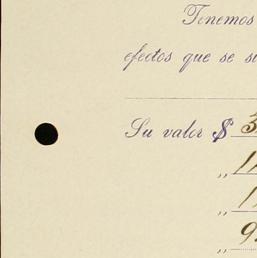 Tenemos
efectos que se
Su valor $ 3
„ 1
„ 1
„ 9